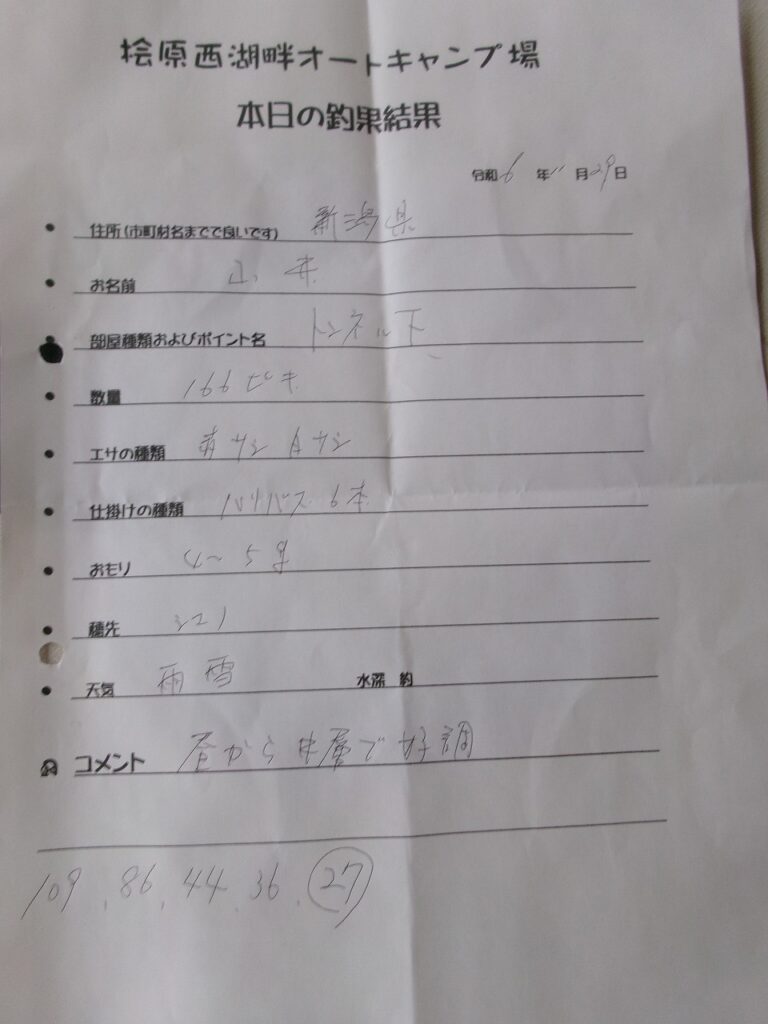 桧原西湖畔オートキャンプ場
本日の釣果結果
令和6年11月29日
住所(市町村名までで良いです) 新潟県
お名前 山井
部屋種類およびポイント名 トンネル下
数量 166ピキ
エサの種類 赤サシ 白サシ
仕掛けの種類 バリバス 6本
おもり 4~5g
穂先
天気 雨雪 水深 約
コメント 昼から中層で好調
109. 86. 44. 36. 27